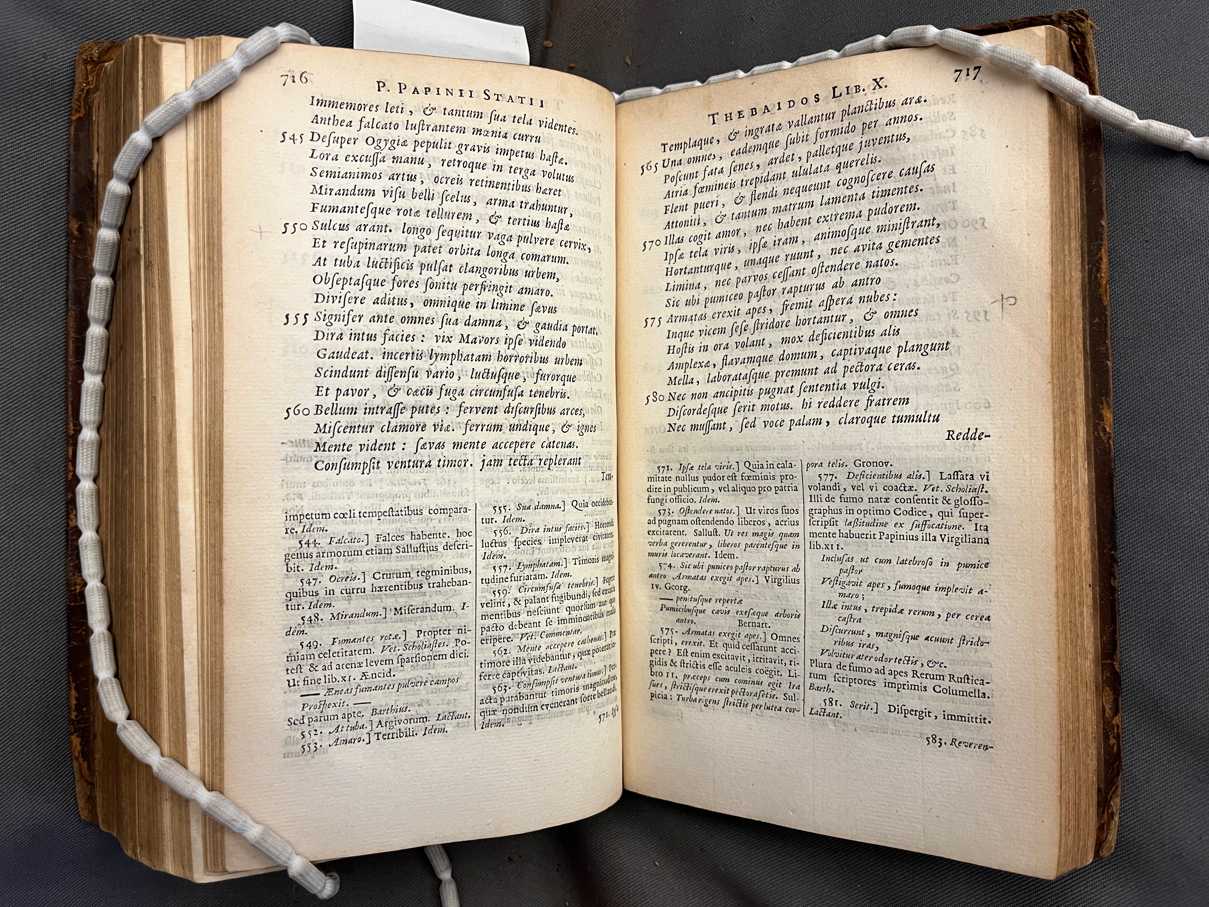 716
P. PAPINII STATII
Immemores leti, & tantum sua tela videntes.
Anthea falcato lustrantem mœnia curru
545 Desuper Ogygiæ pepulit gravis impetus hastæ.
Lora excussa manu, retroque in terga volutus
Semianimos artus, ocreis retinentibus hæret
Mirandum visu belli scelus, arma trahuntur,
Fumantesque rotæ tellurem, & tertius hastæ
550 Sulcus arant. longo sequitur vaga pulvere cervix,
Et resupinarum patet orbita longa comarum.
At tuba luctificis pulsat clangoribus urbem,
Obseptasque fores sonitu perfringit amaro.
Divisere aditus, omnique in limine sævus
555 Signifer ante omnes sua damna, & gaudia portat.
Dira intus facies: vix Mavors ipse videndo
Gaudeat. incertis lymphatam horroribus urbem
Scindunt dissensu vario, luctusque, furorque
Et pavor, & cæcis fuga circunfusa tenebris.
560 Bellum intrasse putes: fervent discursibus arces,
Miscentur clamore viæ. ferrum undique, & ignes
Mente vident: sævas mente accepere catenas.
Consumpsit ventura timor. jam tecta replerant
Tem-
impetum cœli tempestatibus compara-
re. Idem.
544. Falcato.] Falces habente. hoc
genus armorum etiam Sallustius descri-
bit. Idem.
547. Ocreis.] Crurum tegminibus,
quibus in curru hærentibus traheban-
tur. Idem.
548. Mirandum.] Miserandum. I-
dem.
549. Fumantes rotæ.] Propter ni-
miam celeritatem. Vet. Scholiastes. Po-
test & ad arenæ levem sparsionem dici.
Ut fine lib. XI. Æneid.
— Æneas fumantes pulvere campos
Prospexit. —
Sed parum apte. Barthius.
552. At tuba.] Argivorum. Lactant.
553. Amaro.] Terribili. Idem.
555. Sua damna.] Quia occideba-
tur. Idem.
556. Dira intus facies.] Horrendi
luctus species impleverat civitatem.
Idem.
557. Lymphatam.] Timoris magni-
tudine furiatam. Idem.
559. Circumfusa tenebris.]
velint, & palant fugibundi, sed errata
mentibus nesciunt quorsum aut quo
pacto debeant se imminentibus malis
eripere. Vet. Commentar.
562. Mente accepere catenas.] Præ
timore illa videbantur, quæ poterant in-
ferre captivitas. Lactant.
563. Consumpsit ventura timor.]
acta parabantur timoris magnitudine,
quæ nondum evenerant sorte bellandi.
Idem.
571. Ipsæ
717
THEBAIDOS LIB. X.
Templaque, & ingratæ vallantur planctibus aræ.
565 Una omnes, eademque subit formido per annos.
Poscunt fata senes, ardet, palletque juventus,
Atria fœmineis trepidant ululata querelis.
Flent pueri, & flendi nequeunt cognoscere causas
Attoniti, & tantum matrum lamenta timentes.
570 Illas cogit amor, nec habent extrema pudorem.
Ipsæ tela viris, ipsæ iram, animosque ministrant,
Hortanturque, unaque ruunt, nec avita gementes
Limina, nec parvos cessant ostendere natos.
Sic ubi pumiceo pastor rapturus ab antro
575 Armatas erexit apes, fremit aspera nubes:
Inque vicem sese stridore hortantur, & omnes
Hostis in ora volant, mox deficientibus alis
Amplexæ, flavamque domum, captivaque plangunt
Mella, laboratasque premunt ad pectora ceras.
580 Nec non ancipitis pugnat sententia vulgi.
Discordesque serit motus. hi reddere fratrem
Nec mussant, sed voce palam, claroque tumultu
Redde-
571. Ipsæ tela viris.] Quia in cala-
mitate nullus pudor est fœminis pro-
dire in publicum, vel aliquo pro patria
fungi officio. Idem.
573. Ostendere natos.] Ut viros suos
ad pugnam ostendendo liberos, acrius
excitarent. Sallust. Ut res magis quam
verba gererentur, liberos parentesque in
muris locaverant. Idem.
574. Sic ubi pumiceo pastor rapturus ab
antro Armatas exegit apes.] Virgilius
IV. Georg.
— penitusque repertæ
Pumicibusque cavis exesæque arboris
antro. Bernart.
575. Armatas exegit apes.] Omnes
scripti, erexit. Et quid cessarunt acci-
pere? Est enim excitavit, irritavit, ri-
gidis & strictis esse aculeis coëgit. Li-
bro 11. præceps cum cominus egit Ira
sues, strictisque erexit pectora setis. Sul-
picia: Turba rigens strictis per lutea cor-
pora telis. Gronov.
577. Deficientibus alis.] Lassata vi
volandi, vel vi coactæ. Vet. Scholiast.
Illi de fumo natæ consentit & glosso-
graphus in optimo Codice, qui super-
scripsit lassitudine ex suffocatione. Ita
mente habuerit Papinius illa Virgiliana
lib. XII.
Inclusas ut cum latebroso in pumice
pastor
Vestigavit apes, fumoque implevit a-
maro;
Illæ intus, trepidæ rerum, per cerea
castra
Discurrunt, magnisque acuunt strido-
ribus iras,
Volvitur ater odor tectis, &c.
Plura de fumo ad apes Rerum Rustica-
rum scriptores imprimis Columella.
Barth.
581. Serit.] Dispergit, immittit.
Lactant.
583. Reveren-